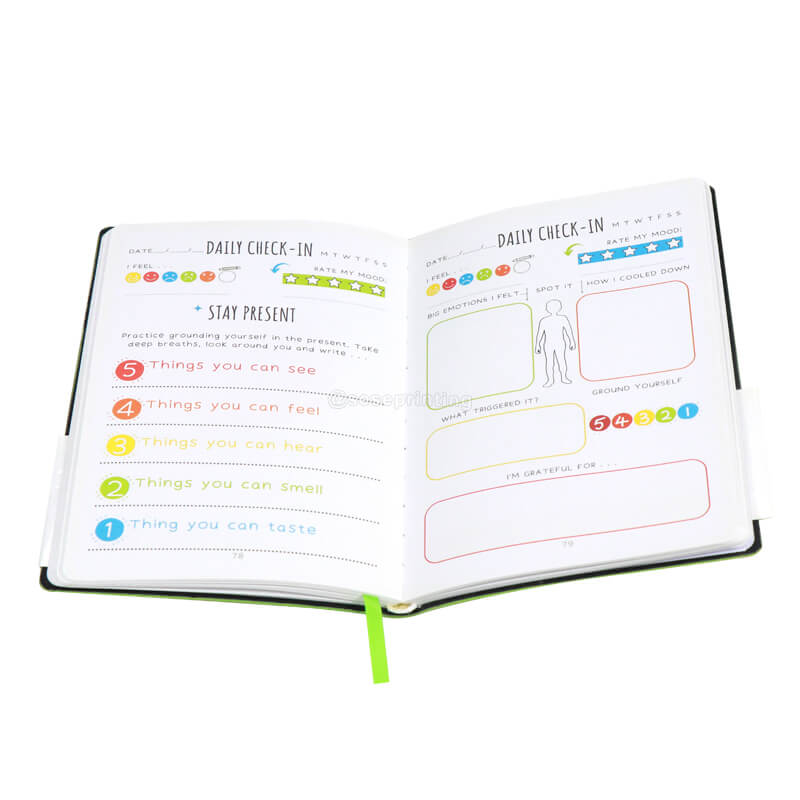 DATE__/__/__ DAILY CHECK-IN M T W T F S S
I FEEL . . .
RATE MY MOOD:
STAY PRESENT
Practice grounding yourself in the present. Take
deep breaths, look around you and write . . .
5 Things you can see
4 Things you can feel
3 Things you can hear
2 Things you can smell
1 Thing you can taste
78
DATE__/__/__ DAILY CHECK-IN M T W T F S S
I FEEL . . .
RATE MY MOOD:
BIG EMOTIONS I FELT
SPOT IT
HOW I COOLED DOWN
WHAT TRIGGERED IT?
GROUND YOURSELF
5 4 3 2 1
I'M GRATEFUL FOR . . .
79
@soseprinting